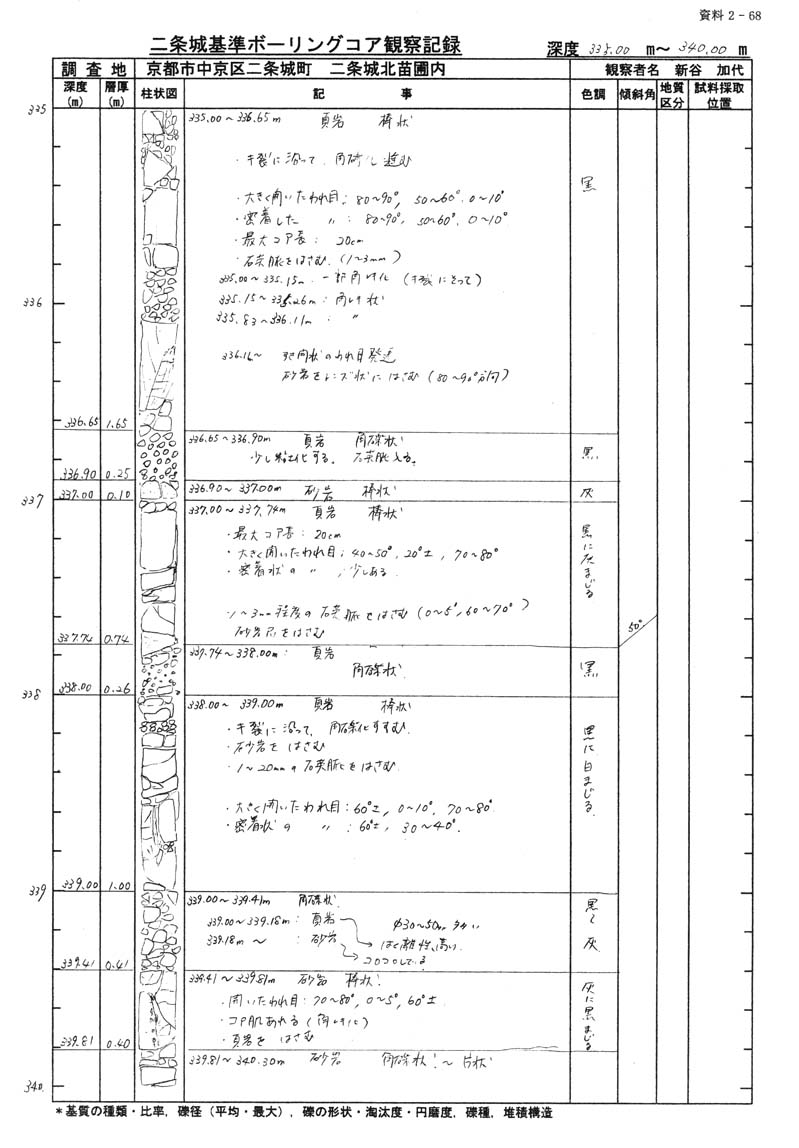 資料 2 - 68
二条城基準ボーリングコア観察記録 深度 335.00 m~ 340.00 m
調査地 京都市中京区二条城町 二条城北苗圃内 観察者名 新谷 加代
深度(m) 層厚(m) 柱状図 記事 色調 傾斜角 地質区分 試料採取位置
335
335.00~336.65m 頁岩 棒状
・キ裂に沿って、角礫化し進む
黒
・大きく開いたわれ目: 80~90°, 50~60°, 0~10°
・密着した 〃 : 80~90°, 50~60°, 0~10°
・最大コア長: 20cm
・石英脈をはさむ。(1~3mm)
335.00~335.15m: 一部角レキ化
335.15~335.26m: 角レキ状
336
335.83~336.11m: 〃
336.16~ 状のわれ目発達
砂岩をレンズ状にはさむ (80~90°方向)
336.65 1.65
336.65~336.90m 頁岩 角礫状
少し粘土化する。石英脈入る。
黒
336.90 0.25
336.90~337.00m 砂岩 棒状
灰
337.00 0.10
337
337.00~337.74m 頁岩 棒状
・最大コア長: 20cm
・大きく開いたわれ目; 40~50°, 20°±, 70~80°
・密着状の 〃 ; 少しある
黒に灰まじる
・1~3mm程度の石英脈をはさむ (0~5°, 60~70°)
砂岩をはさむ
50°
337.74 0.74
337.74~338.00m: 頁岩
角礫状
黒
338.00 0.26
338
338.00~339.00m 頁岩 棒状
・キ裂に沿って、角礫化すすむ
・砂岩をはさむ
・1~20mmの石英脈をはさむ
黒に白まじる
・大きく開いたわれ目: 60°±, 0~10°, 70~80°
・密着状の 〃 : 60°±, 30~40°.
339.00 1.00
339
339.00~339.41m 角礫状
339.00~339.18m: 頁岩 φ30~50m
339.18m~ : 砂岩 はく離性高い
コロコロしている
黒~灰
339.41 0.41
339.41~339.81m 砂岩 棒状
・開いたわれ目: 70~80°, 0~5°, 60°±
・コア肌あれる (角レキ化)
・頁岩をはさむ
灰に黒まじる
339.81 0.40
339.81~340.30m 砂岩 角礫状~片状
340
*基質の種類・比率, 礫径(平均・最大), 礫の形状・淘汰度・円磨度, 礫種, 堆積構造